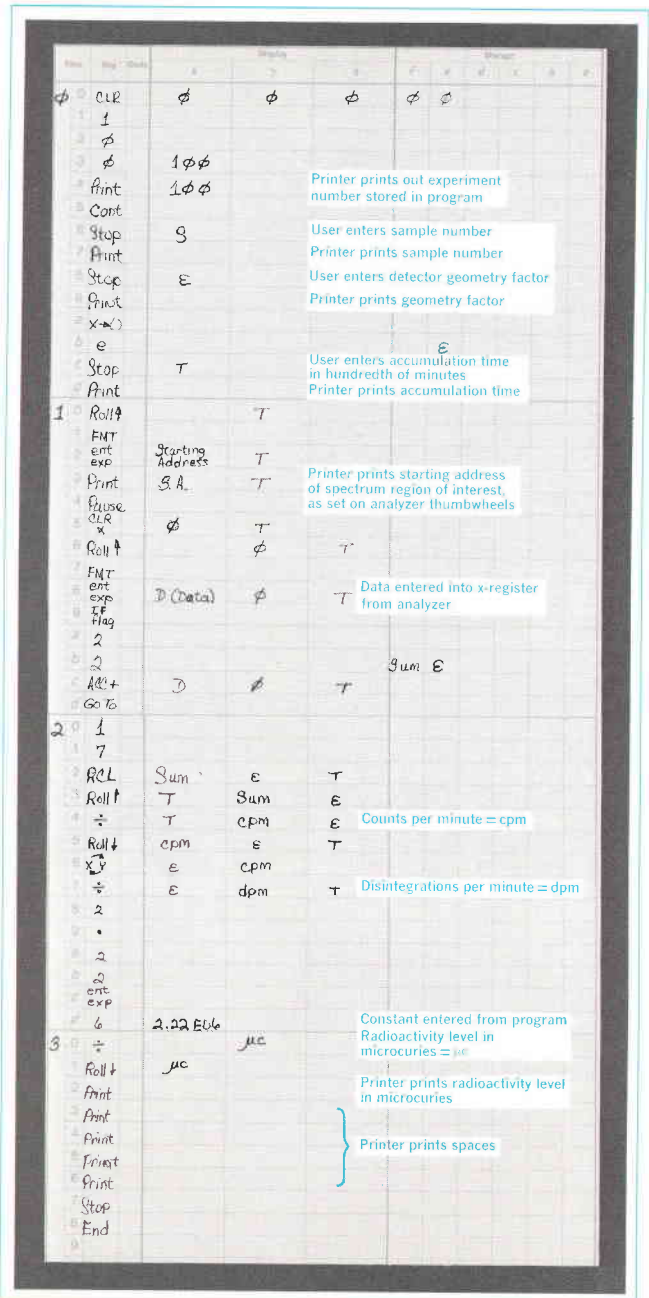 Display Storage
Step Key Code x y z f e d c b a
ϕ 0 CLR ϕ ϕ ϕ ϕ ϕ
1 1
2 ϕ
3 ϕ 1ϕϕ
4 Print 1ϕϕ Printer prints out experiment
number stored in program
5 Cont
6 Stop S User enters sample number
7 Print Printer prints sample number
8 Stop ε User enters detector geometry factor
9 Print Printer prints geometry factor
a x→()
b e ε
c Stop T User enters accumulation time
in hundredth of minutes
d Print Printer prints accumulation time
1 0 Roll↑ T
1 FMT
2 ent exp Starting Address T
3 Print S.A. T Printer prints starting address
of spectrum region of interest,
as set on analyzer thumbwheels
4 Pause
5 CLR x ϕ T
6 Roll↑ ϕ T
7 FMT
8 ent exp D (Data) ϕ T Data entered into x-register
from analyzer
9 IF flag
a 2
b 2 Sum ε
c ACC+ D ϕ T
d Go To
2 0 1
1 7
2 RCL Sum ε T
3 Roll↑ T Sum ε
4 ÷ T cpm ε Counts per minute = cpm
5 Roll↓ cpm ε T
6 x y ε cpm
7 ÷ ε dpm T Disintegrations per minute = dpm
8 2
9 •
a 2
b 2
c ent exp
d 6 2.22 E06 Constant entered from program
3 0 ÷ μc Radioactivity level in
microcuries = μc
1 Roll↓ μc
2 Print Printer prints radioactivity level
in microcuries
3 Print
4 Print Printer prints spaces
5 Print
6 Print
7 Stop
8 End
9